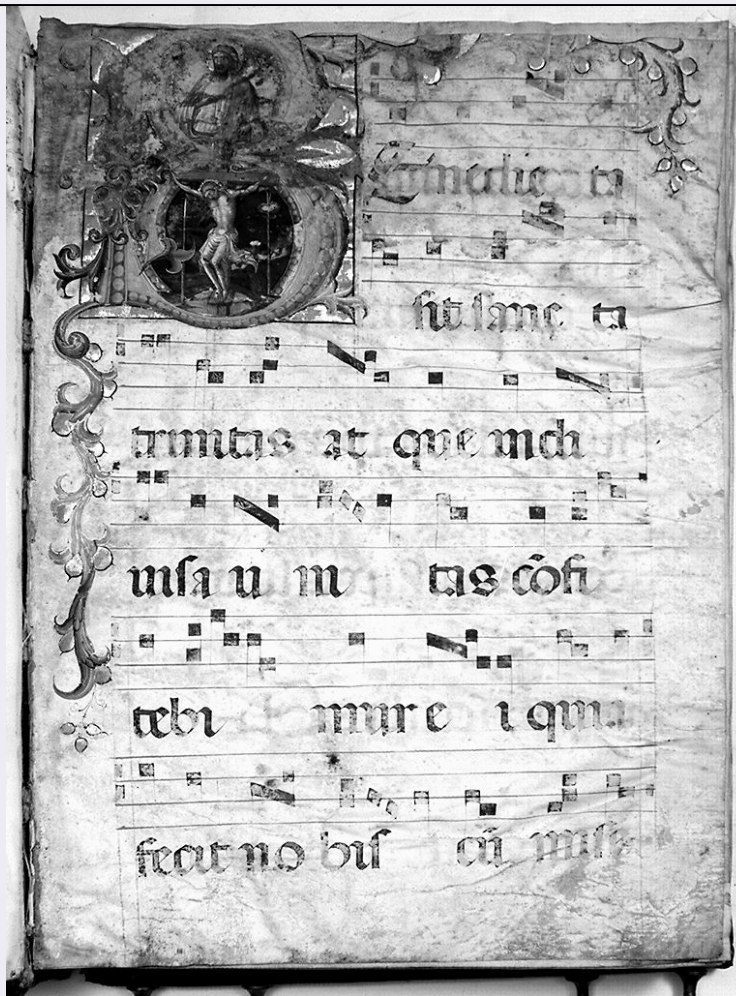 Benedic ta
sit sanc ta
trinitas at que indi
uisa u ni tas cõfi
tebi mur e i quia
fecit no bis cũ mise